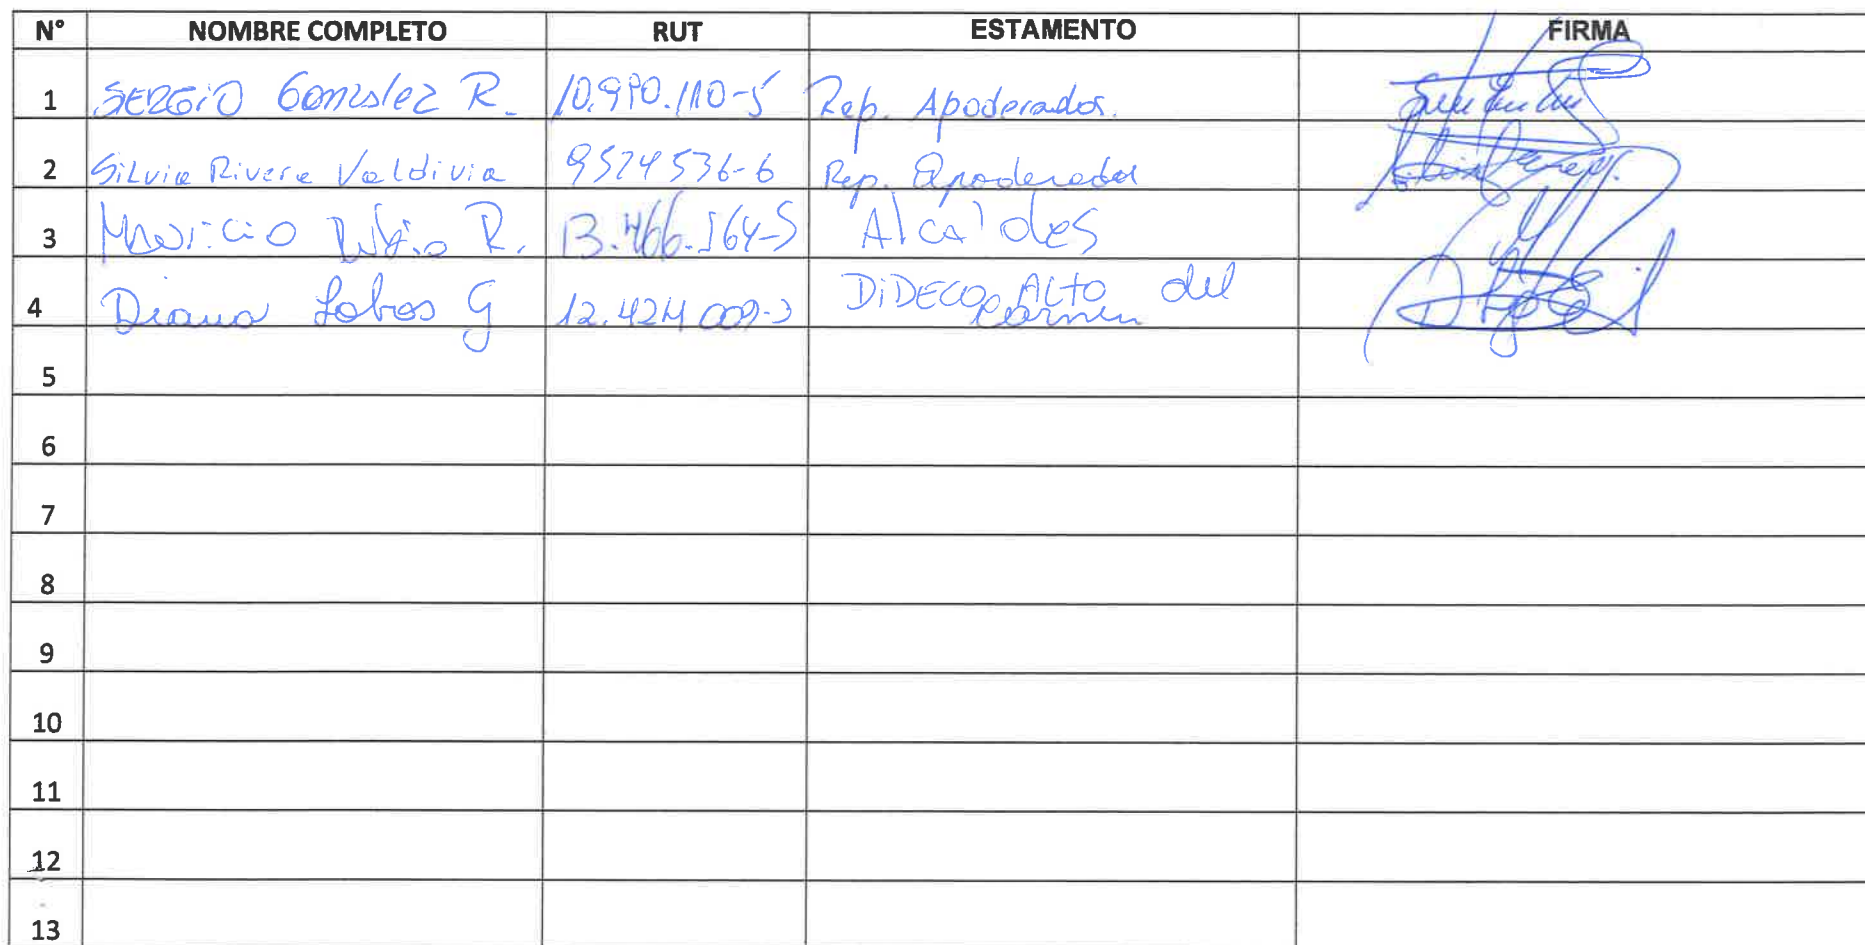 N° NOMBRE COMPLETO RUT ESTAMENTO FIRMA
1 SERGIO Gonzslez R. 10.990.110-5 Rep. Apoderados.
2 Silvia Rivera Valdivia 9574536-6 Rep. Apoderados
3 Mauricio R. 13.466.564-5 Alcaldes
4 Diana Lobos G 12.424.009- DiDECO ALTO del
Carmen
5
6
7
8
9
10
11
12
13